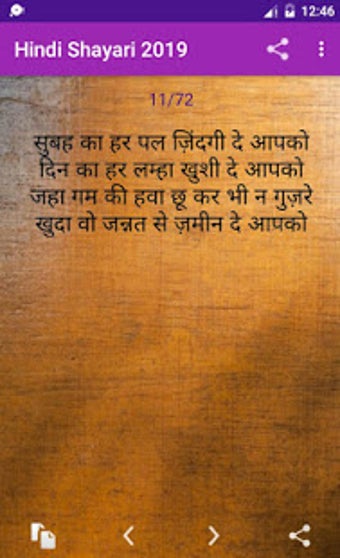 12:46
Hindi Shayari 2019
11/72
सुबह का हर पल ज़िंदगी दे आपको
दिन का हर लम्हा खुशी दे आपको
जहा गम की हवा छू कर भी न गुज़रे
खुदा वो जन्नत से ज़मीन दे आपको